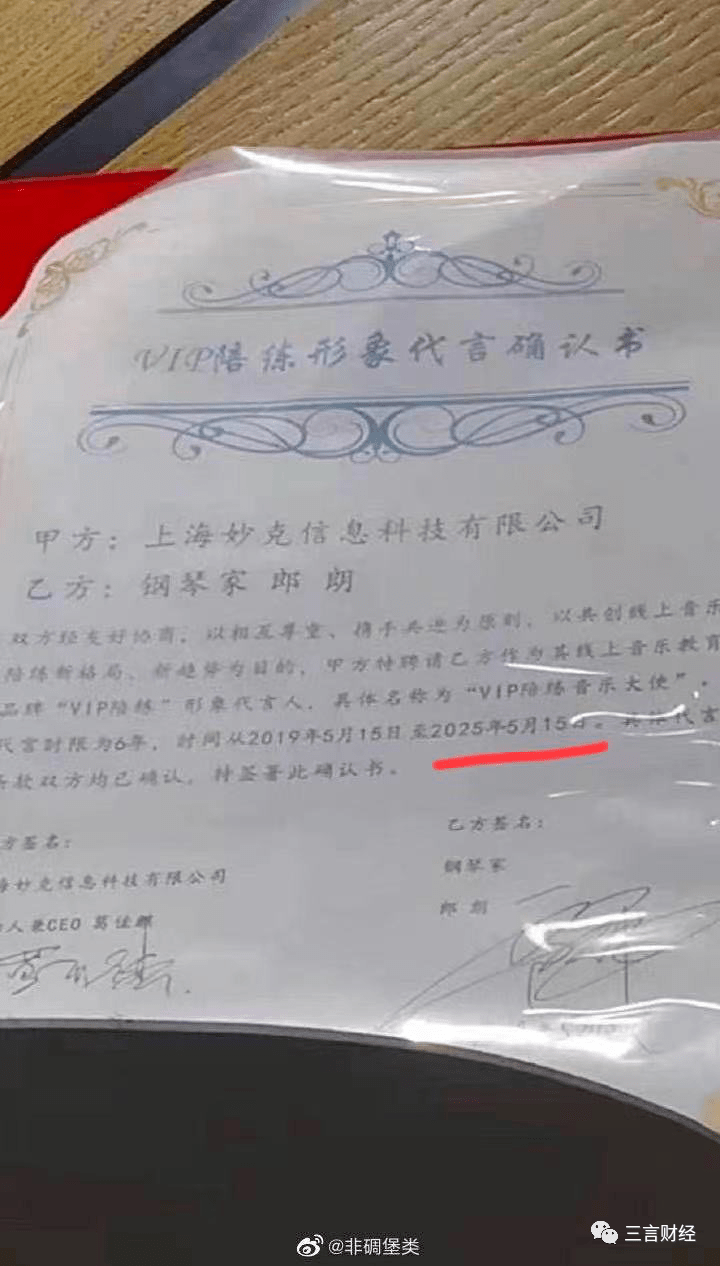 VIP陪练形象代言确认书
甲方：上海妙克信息科技有限公司
乙方：钢琴家 郎 朗
双方经友好协商，以相互尊重、携手共进为原则，以共创线上音乐
陪练新格局、新趋势为目的，甲方特聘请乙方作为其线上音乐教育
品牌“VIP陪练”形象代言人，具体名称为“VIP陪练音乐大使”。
代言时限为6年，时间从2019年5月15日至2025年5月15日。具体代言
条款双方均已确认，特签署此确认书。
方签名：
乙方签名：
海妙克信息科技有限公司
钢琴家
人兼CEO 葛佳麒
郎 朗
@非碉堡类
三言财经